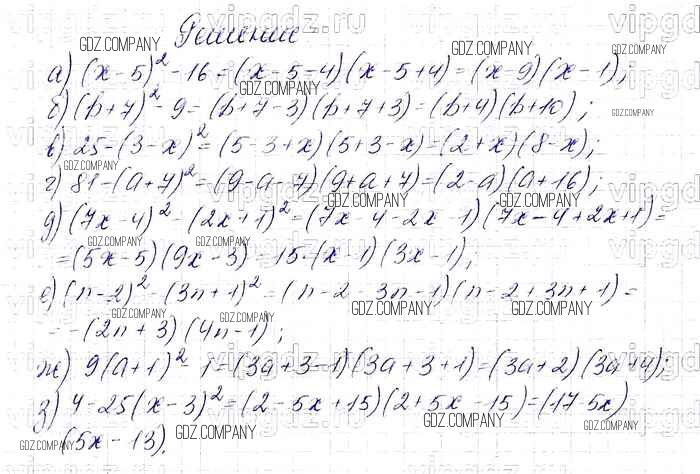 Решение
а) (x-5)² - 16 = (x-5-4)(x-5+4) = (x-9)(x-1);
б) (b+7)² - 9 = (b+7-3)(b+7+3) = (b+4)(b+10);
в) 25-(3-x)² = (5-3+x)(5+3-x) = (2+x)(8-x);
г) 81-(a+7)² = (9-a-7)(9+a+7) = (2-a)(a+16);
д) (7x-4)² - (2x+1)² = (7x-4-2x-1)(7x-4+2x+1) =
= (5x-5)(9x-3) = 15·(x-1)(3x-1);
е) (n-2)² - (3n+1)² = (n-2-3n-1)(n-2+3n+1) =
= -(2n+3)(4n-1);
ж) 9(a+1)² - 1 = (3a+3-1)(3a+3+1) = (3a+2)(3a+4);
з) 4-25(x-3)² = (2-5x+15)(2+5x-15) = (17-5x)
(5x-13).
GDZ.COMPANY
vipgdz.ru